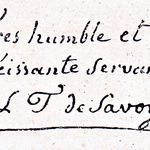 res humble et
éissante servan
L T de Savoy